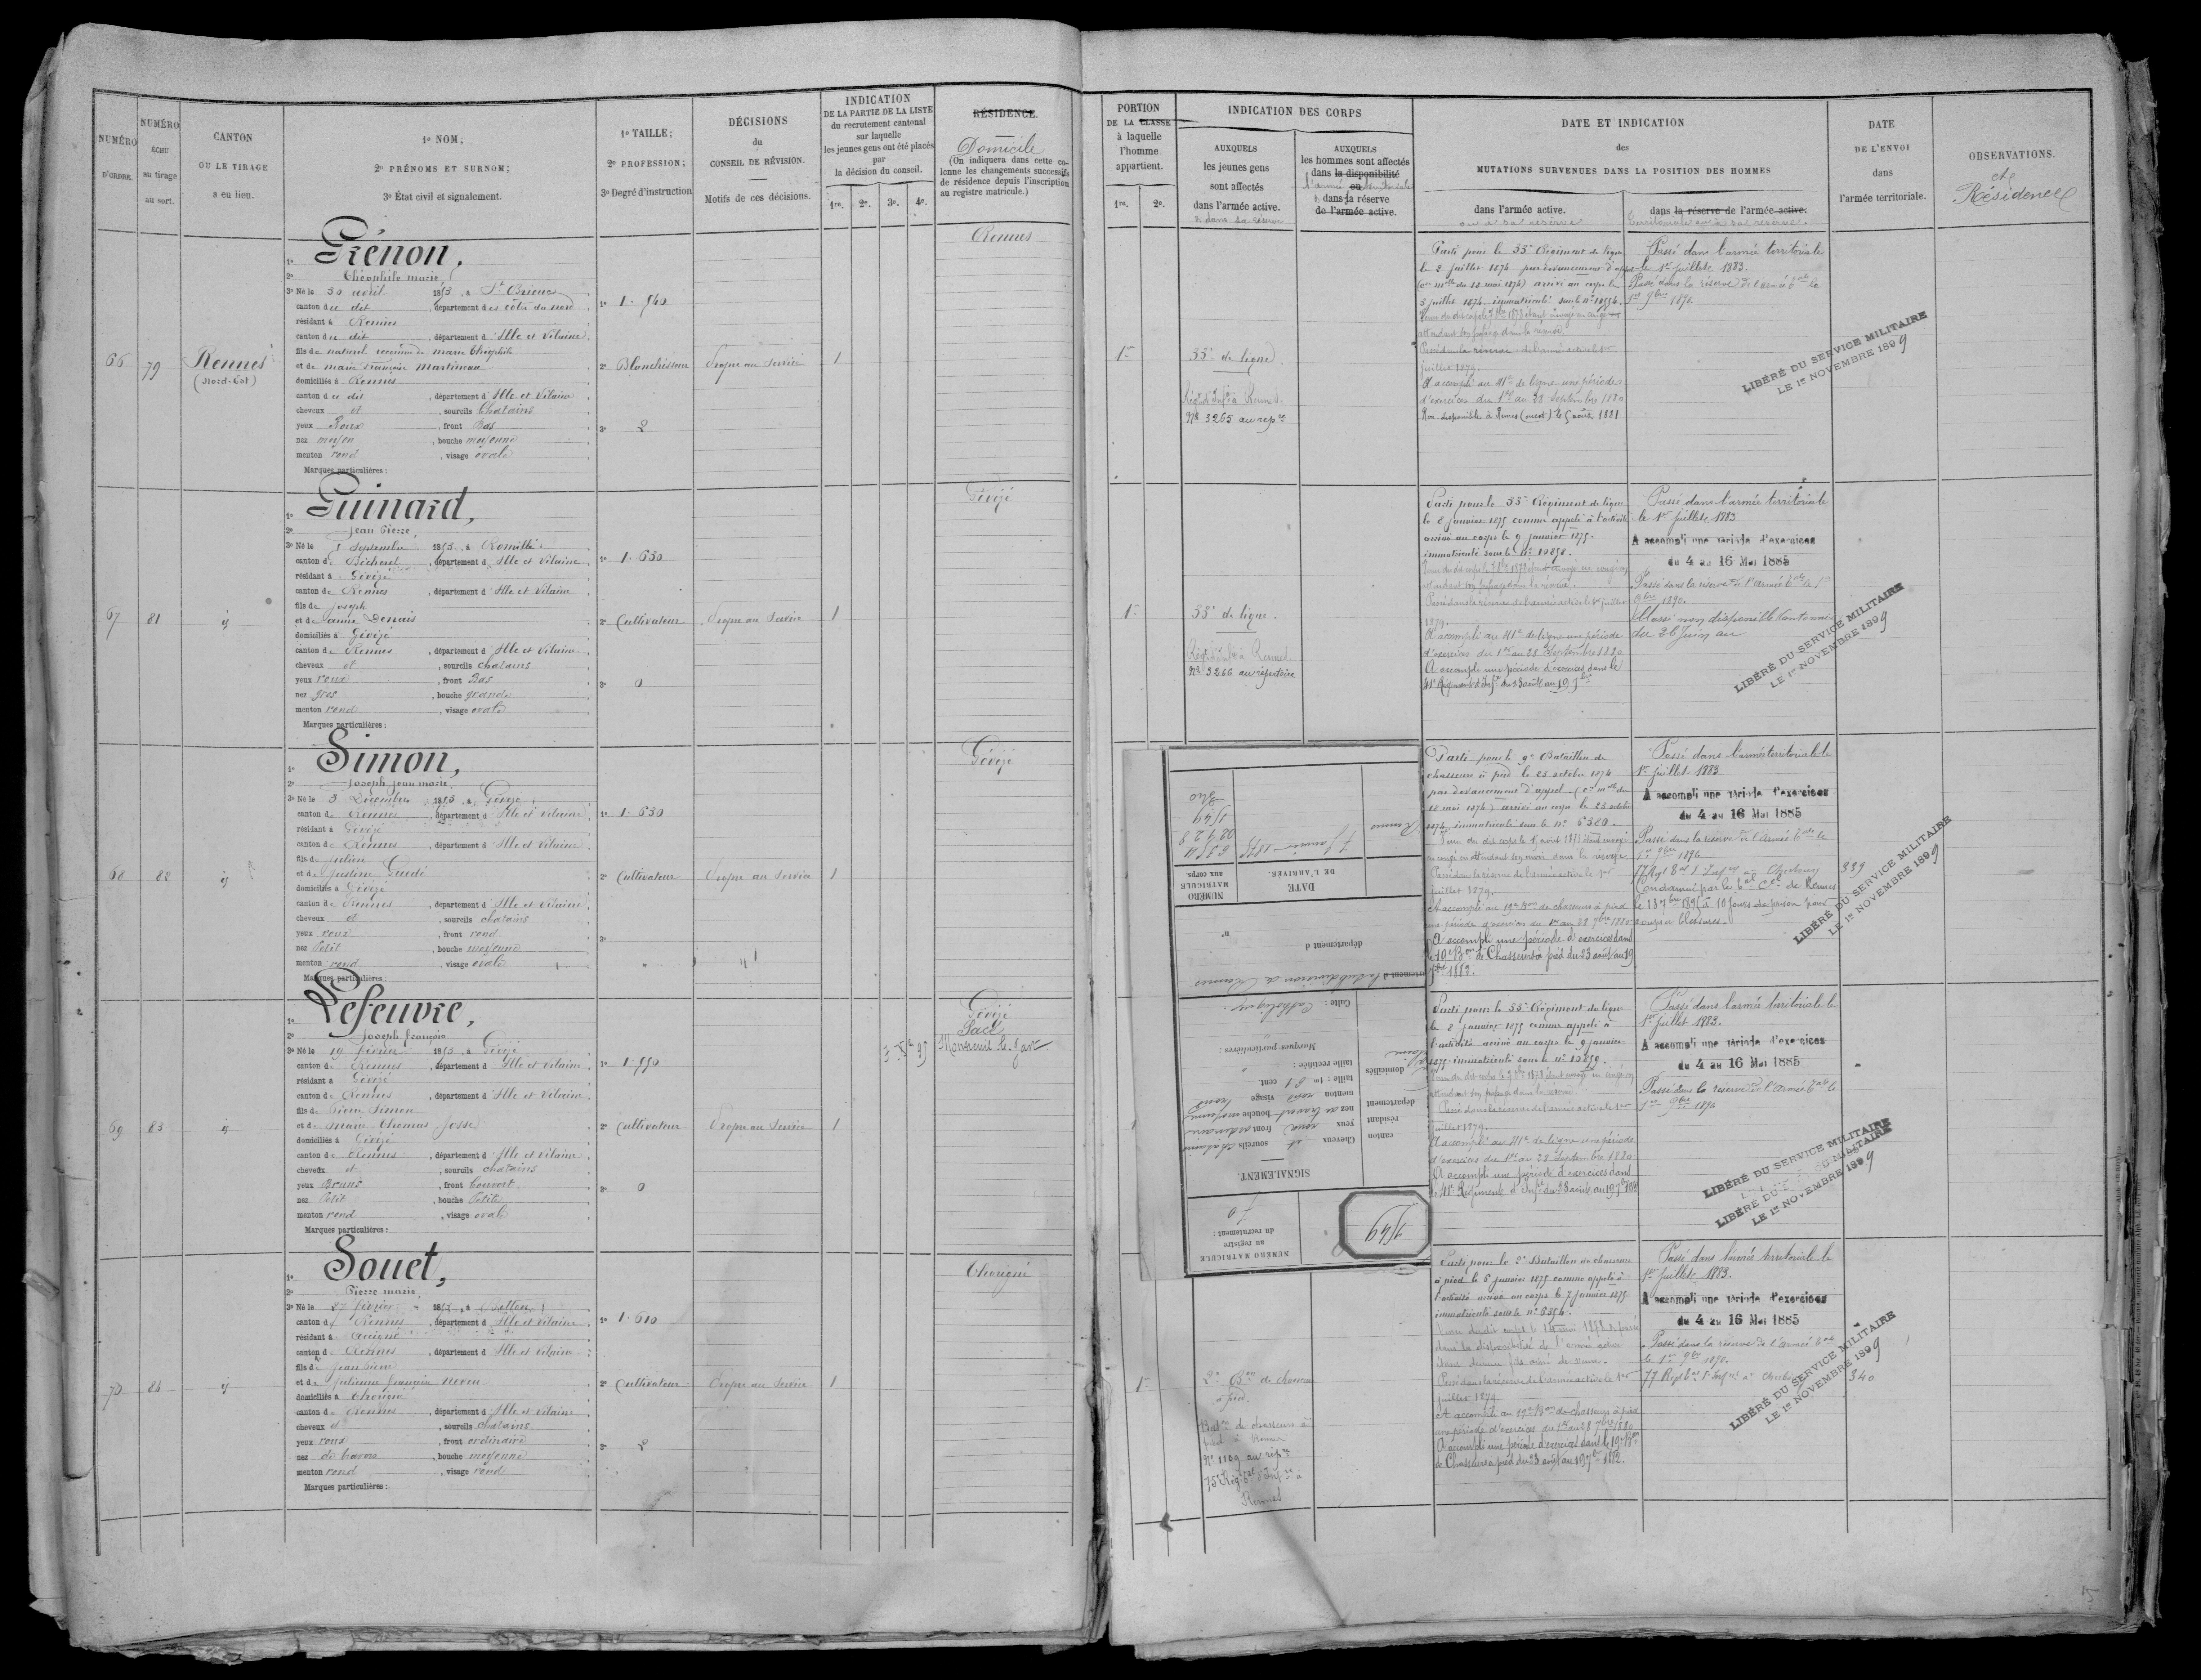 NUMÉRO
D'ORDRE.
NUMÉRO
ÉCHU
au tirage
au sort.
CANTON
OU LE TIRAGE
a eu lieu.
1º NOM;
2º PRÉNOMS ET SURNOM;
3º État civil et signalement.
1º TAILLE;
2º PROFESSION;
3º Degré d'instruction
DÉCISIONS
du
CONSEIL DE RÉVISION.
Motifs de ces décisions.
INDICATION
DE LA PARTIE DE LA LISTE
du recrutement cantonal
sur laquelle
les jeunes gens ont été placés
par
la décision du conseil.
1re. 2e. 3e. 4e.
RÉSIDENCE.
Domicile
(On indiquera dans cette co-
lonne les changements successifs
de résidence depuis l'inscription
au registre matricule.)
66
79
Rennes
(Nord-Est)
1º Grénon,
2º Théophile marie
3º Né le 30 avril 1853, à St Brieuc
canton du dit, département des côtes du nord
résidant à Rennes
canton du dit, département d'Ille et Vilaine
fils de naturel reconnu de marie théophile
et de marie françoise martineau
domiciliés à Rennes
canton du dit, département d'Ille et Vilaine
cheveux et, sourcils Chatains
yeux Roux, front Bas
nez moyen, bouche moyenne
menton rond, visage ovale
Marques particulières :
1º 1.540
2º Blanchisseur
3º 2
Propre au Service
1
Rennes
67
81
id
1º Guinard,
2º Jean Pierre,
3º Né le 5 Septembre 1853, à Romillé
canton de Bécherel, département d'Ille et Vilaine
résidant à Gévezé
canton de Rennes, département d'Ille et Vilaine
fils de joseph
et de anne Denais
domiciliés à Gévezé
canton de Rennes, département d'Ille et Vilaine
cheveux et, sourcils chatains
yeux roux, front Bas
nez gros, bouche grande
menton rond, visage ovale
Marques particulières :
1º 1.630
2º Cultivateur
3º 0
Propre au Service
1
Gévezé
68
82
id
1º Simon,
2º Joseph jean marie
3º Né le 3 Décembre 1853, à Gévezé
canton de Rennes, département d'Ille et Vilaine
résidant à Gévezé
canton de Rennes, département d'Ille et Vilaine
fils de julien
et de justine Guedé
domiciliés à Gévezé
canton de Rennes, département d'Ille et Vilaine
cheveux et, sourcils chatains
yeux roux, front rond
nez Petit, bouche moyenne
menton rond, visage ovale
Marques particulières :
1º 1.630
2º Cultivateur
3º
Propre au Service
1
Gévezé
69
83
id
1º Lefeuvre,
2º Joseph françois
3º Né le 19 février 1853, à Gévezé
canton de Rennes, département d'Ille et Vilaine
résidant à Gévezé
canton de Rennes, département d'Ille et Vilaine
fils de Pierre Simon
et de Marie Thomas Josse
domiciliés à Gévezé
canton de Rennes, département d'Ille et Vilaine
cheveux et, sourcils chatains
yeux Bruns, front Couvert
nez Petit, bouche Petite
menton rond, visage ovale
Marques particulières :
1º 1.550
2º Cultivateur
3º 0
Propre au Service
1
Gévezé
Pacé
Montreuil le Gast
70
84
id
1º Souet,
2º Pierre marie,
3º Né le 27 février 1853, à Betton
canton de Rennes, département d'Ille et Vilaine
résidant à Acigné
canton de Rennes, département d'Ille et Vilaine
fils de jean Pierre
et de julienne françoise neveu
domiciliés à Thorigné
canton de Rennes, département d'Ille et Vilaine
cheveux et, sourcils chatains
yeux roux, front ordinaire
nez de travers, bouche moyenne
menton rond, visage rond
Marques particulières :
1º 1.610
2º Cultivateur
3º 2
Propre au Service
1
Thorigné
PORTION
DE LA CLASSE
à laquelle
l'homme
appartient.
1re. 2e.
INDICATION DES CORPS
AUXQUELS
les jeunes gens
sont affectés
dans l'armée active.
et dans sa réserve
AUXQUELS
les hommes sont affectés
dans la disponibilité
ou
l'armée territoriale
dans la réserve
de l'armée active.
DATE ET INDICATION
des
MUTATIONS SURVENUES DANS LA POSITION DES HOMMES
dans l'armée active.
ou à sa réserve
dans la réserve de l'armée active.
territoriale ou à sa réserve.
DATE
DE L'ENVOI
dans
l'armée territoriale.
OBSERVATIONS.
et
Résidence
1re
33e de ligne.
Régt d'Infie à Rennes.
No 3265 au repre
Parti pour le 33e Régiment de ligne
le 2 juillet 1874 par devancement d'appel
(ce mlle du 18 mai 1874) arrivé au corps le
3 juillet 1874. immatriculé sous le nº 10556.
attendant son passage dans la réserve.
Passé dans la réserve de l'armée active le 1er
juillet 1879.
A accompli au 41e de ligne une période
d'exercices du 1er au 28 Septembre 1880
Non disponible à Rennes (ouest) le 5 août 1881
Passé dans l'armée territoriale
le 1er juillet 1883.
Passé dans la réserve de l'armée tale le
LIBÉRÉ DU SERVICE MILITAIRE
LE 1er NOVEMBRE 1899
1re
33e de ligne.
Régt d'Infie à Rennes.
No 3266 au répertoire
Parti pour le 33e Régiment de ligne
le 8 janvier 1875 comme appelé à l'activité
arrivé au corps le 9 janvier 1875.
immatriculé sous le Nº 10858.
attendant son passage dans la réserve.
Passé dans la réserve de l'armée active le 1er juillet
1879.
A accompli au 41e de ligne une période
d'exercices du 1er au 28 Septembre 1880
A accompli une période d'exercices dans le
41e Régiment d'Infie du 23 août au 19 7bre
Passé dans l'armée territoriale
le 1er juillet 1883
A accompli une période d'exercices
du 4 au 16 Mai 1885
Passé dans la réserve de l'Armée tale le 1er
9bre 1890.
Classé non disponible Cantonnier
du 26 Juin au
LIBÉRÉ DU SERVICE MILITAIRE
LE 1er NOVEMBRE 1899
Parti pour le 9e Bataillon de
chasseurs à pied le 23 octobre 1874
par devancement d'appel (ce mlle du
18 mai 1874) arrivé au corps le 25 octobre
1874, immatriculé sous le nº 6380.
Passé dans la réserve de l'armée active le 1er
juillet 1879.
A accompli au 19e Bon de chasseurs à pied
une période d'exercices du 1er au 28 7bre 1880
A accompli une période d'exercices dans
le 19e Bon de Chasseurs à pied du 23 août au 19
7bre 1882.
Passé dans l'armée territoriale le
1er juillet 1883.
A accompli une période d'exercices
du 4 au 16 Mai 1885
Passé dans la réserve de l'Armée tale le
1er 9bre 1890
77 Regt tal d'Infie à Cherbourg 339
Condamné par le tal cel de Rennes
à 10 jours de prison pour
coups et blessures.
LIBÉRÉ DU SERVICE MILITAIRE
LE 1er NOVEMBRE 1899
Parti pour le 33e Régiment de ligne
le 8 janvier 1875 comme appelé à
l'activité arrivé au corps le 9 janvier
1875. immatriculé sous le nº 10859.
Passé dans la réserve de l'armée active le 1er
juillet 1879.
A accompli au 41e de ligne une période
d'exercices du 1er au 28 Septembre 1880
A accompli une période d'exercices dans
le 41e Régiment d'Infie du 23 août au 19 7bre 1882
Passé dans l'armée territoriale le
1er juillet 1883.
A accompli une période d'exercices
du 4 au 16 Mai 1885
Passé dans la réserve de l'Armée tale le
1er 9bre 1890
LIBÉRÉ DU SERVICE MILITAIRE
LIBÉRÉ DU SERVICE MILITAIRE
LE 1er NOVEMBRE 1899
1
2e Bon de chasseurs
à pied.
Baton de chasseurs à
pied à Rennes
Nº 1109 au repre
75e Régt tal d'Infie à
Rennes
Parti pour le 2e Bataillon de chasseurs
à pied le 6 janvier 1875 comme appelé à
l'activité arrivé au corps le 7 janvier 1875.
immatriculé sous le nº 6354.
dans la disponibilité de l'armée active
Passé dans la réserve de l'armée active le 1er
juillet 1879.
A accompli au 19e Bon de chasseurs à pied
une période d'exercices du 1er au 28 7bre 1880
A accompli une période d'exercices dans le 19e Bon
de Chasseurs à pied du 23 août au 19 7bre 1882.
Passé dans l'armée territoriale le
1er juillet 1883.
A accompli une période d'exercices
du 4 au 16 Mai 1885
Passé dans la réserve de l'Armée tale
le 1er 9bre 1890.
77 Regt tal d'Infie à Cherbourg 340
LIBÉRÉ DU SERVICE MILITAIRE
LE 1er NOVEMBRE 1899
NUMÉRO MATRICULE
au registre
du recrutement :
70
1549
SIGNALEMENT.
Cheveux et sourcils châtains
yeux roux front ordinaire
nez de travers bouche moyenne
menton rond visage rond
taille : 1m 61 cent.
taille rectifiée :
Marques particulières :
Culte : Catholique
canton
résidant
département
domiciliés
département d
nº
la subdivision de Rennes
NUMÉRO
MATRICULE
aux corps.
DATE
DE L'ARRIVÉE.
6354
02928
1549
340
7 janvier 1875
Rennes
15